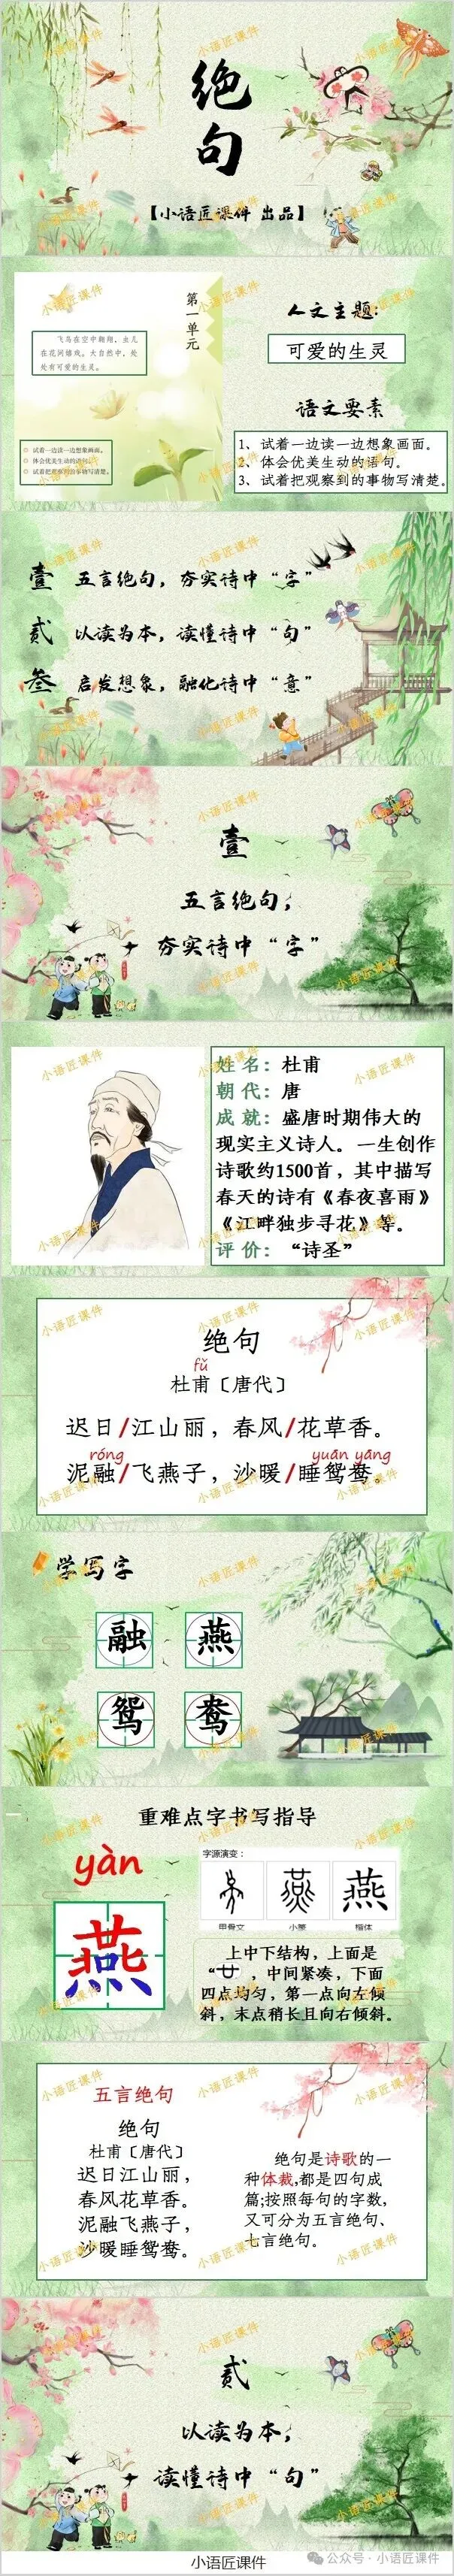 绝句
【小语匠课件 出品】
第一单元
飞鸟在空中翱翔，虫儿
在花间嬉戏。大自然中，处
处有可爱的生灵。
试着一边读一边想象画面。
体会优美生动的语句。
试着把观察到的事物写清楚。
人文主题：
可爱的生灵
语文要素
1、试着一边读一边想象画面。
2、体会优美生动的语句。
3、试着把观察到的事物写清楚。
壹 五言绝句，夯实诗中“字”
贰 以读为本，读懂诗中“句”
叁 启发想象，融化诗中“意”
壹
五言绝句，
夯实诗中“字”
姓名：杜甫
朝代：唐
成就：盛唐时期伟大的
现实主义诗人。一生创作
诗歌约1500首，其中描写
春天的诗有《春夜喜雨》
《江畔独步寻花》等。
评价：“诗圣”
绝句
fǔ
杜甫〔唐代〕
迟日/江山丽，春风/花草香。
róng yuān yāng
泥融/飞燕子，沙暖/睡鸳鸯。
学写字
融 燕
鸳 鸯
重难点字书写指导
yàn
燕
字源演变：
燕 燕
甲骨文 小篆 楷体
上中下结构，上面是
“廿”，中间紧凑，下面
四点均匀，第一点向左倾
斜，末点稍长且向右倾斜。
五言绝句
绝句
杜甫〔唐代〕
迟日江山丽，
春风花草香。
泥融飞燕子，
沙暖睡鸳鸯。
绝句是诗歌的一
种体裁,都是四句成
篇;按照每句的字数,
又可分为五言绝句、
七言绝句。
贰
以读为本，
读懂诗中“句”
小语匠课件
公众号·小语匠课件